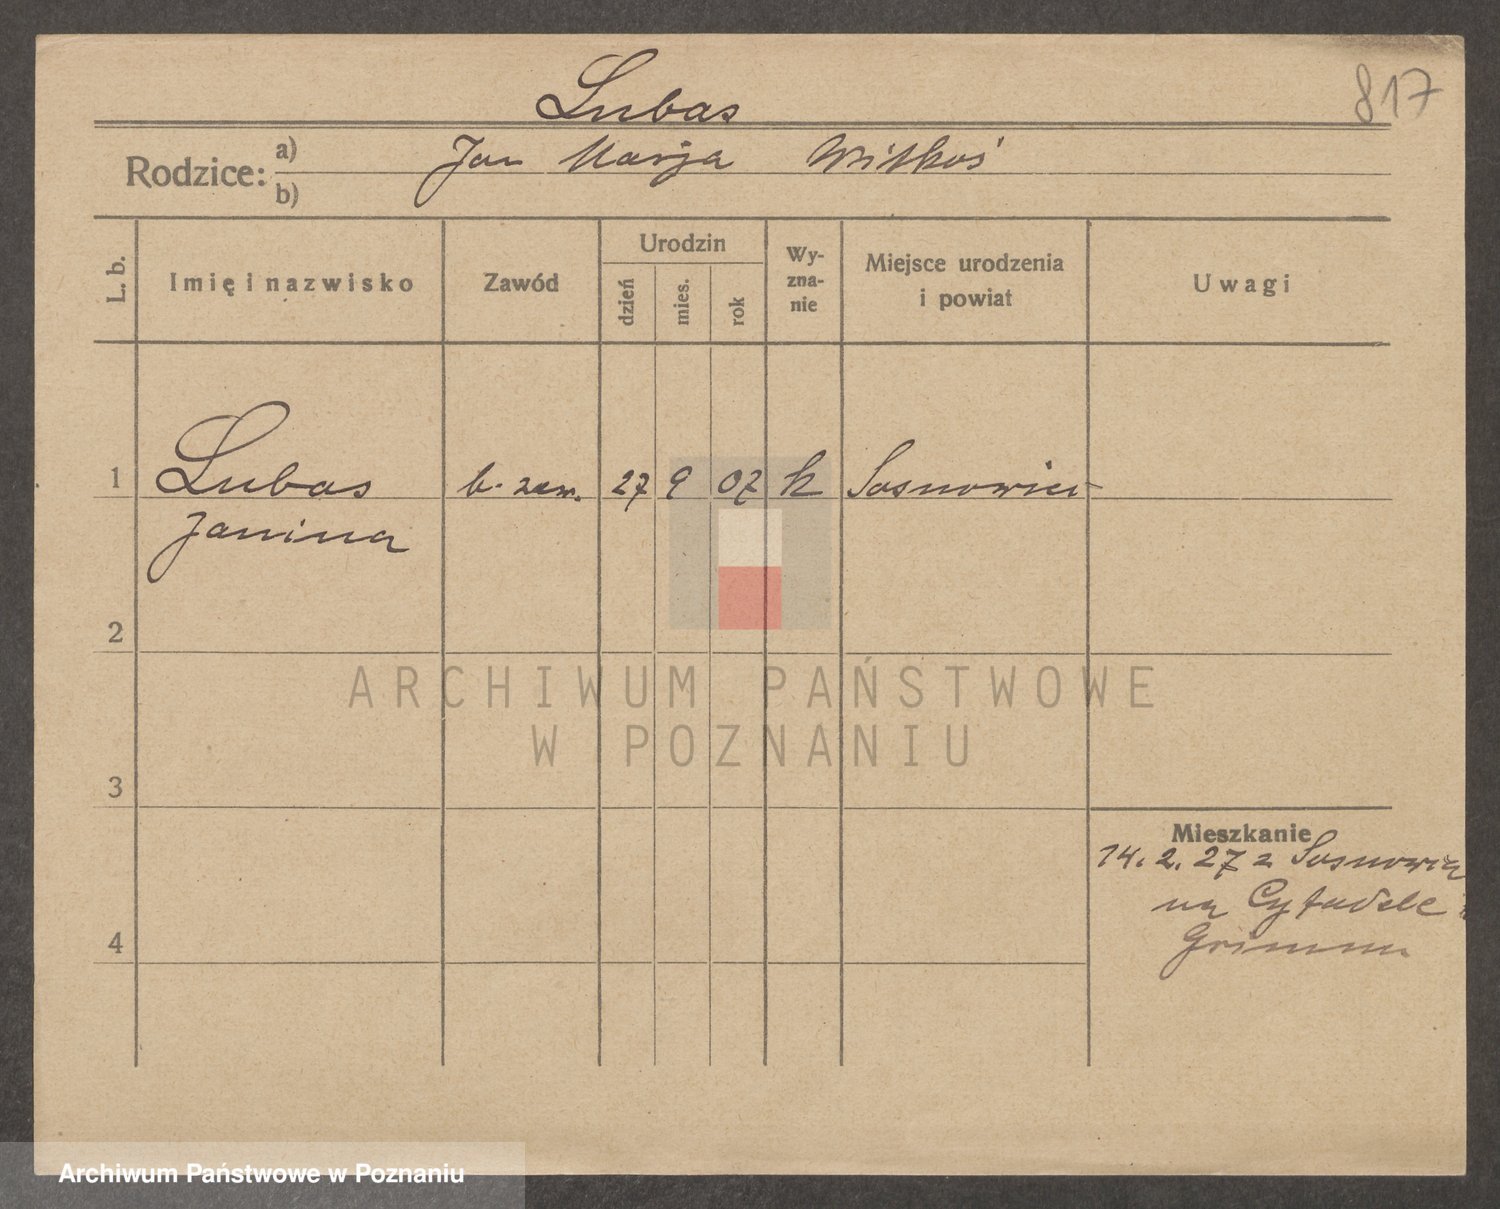 817
Lubas
Rodzice: a) b)
Jan Marja Witkoś
L. b.
Imię i nazwisko
Zawód
Urodzin
dzień
mies.
rok
Wy-
zna-
nie
Miejsce urodzenia
i powiat
Uwagi
1 Lubas b. zaw. 27 9 07 k Sosnowiec
Janina
2
ARCHIWUM PAŃSTWOWE
W POZNANIU
3
Mieszkanie
14. 2. 27 z Sosnowca
na Cytadele
4
Archiwum Państwowe w Poznaniu